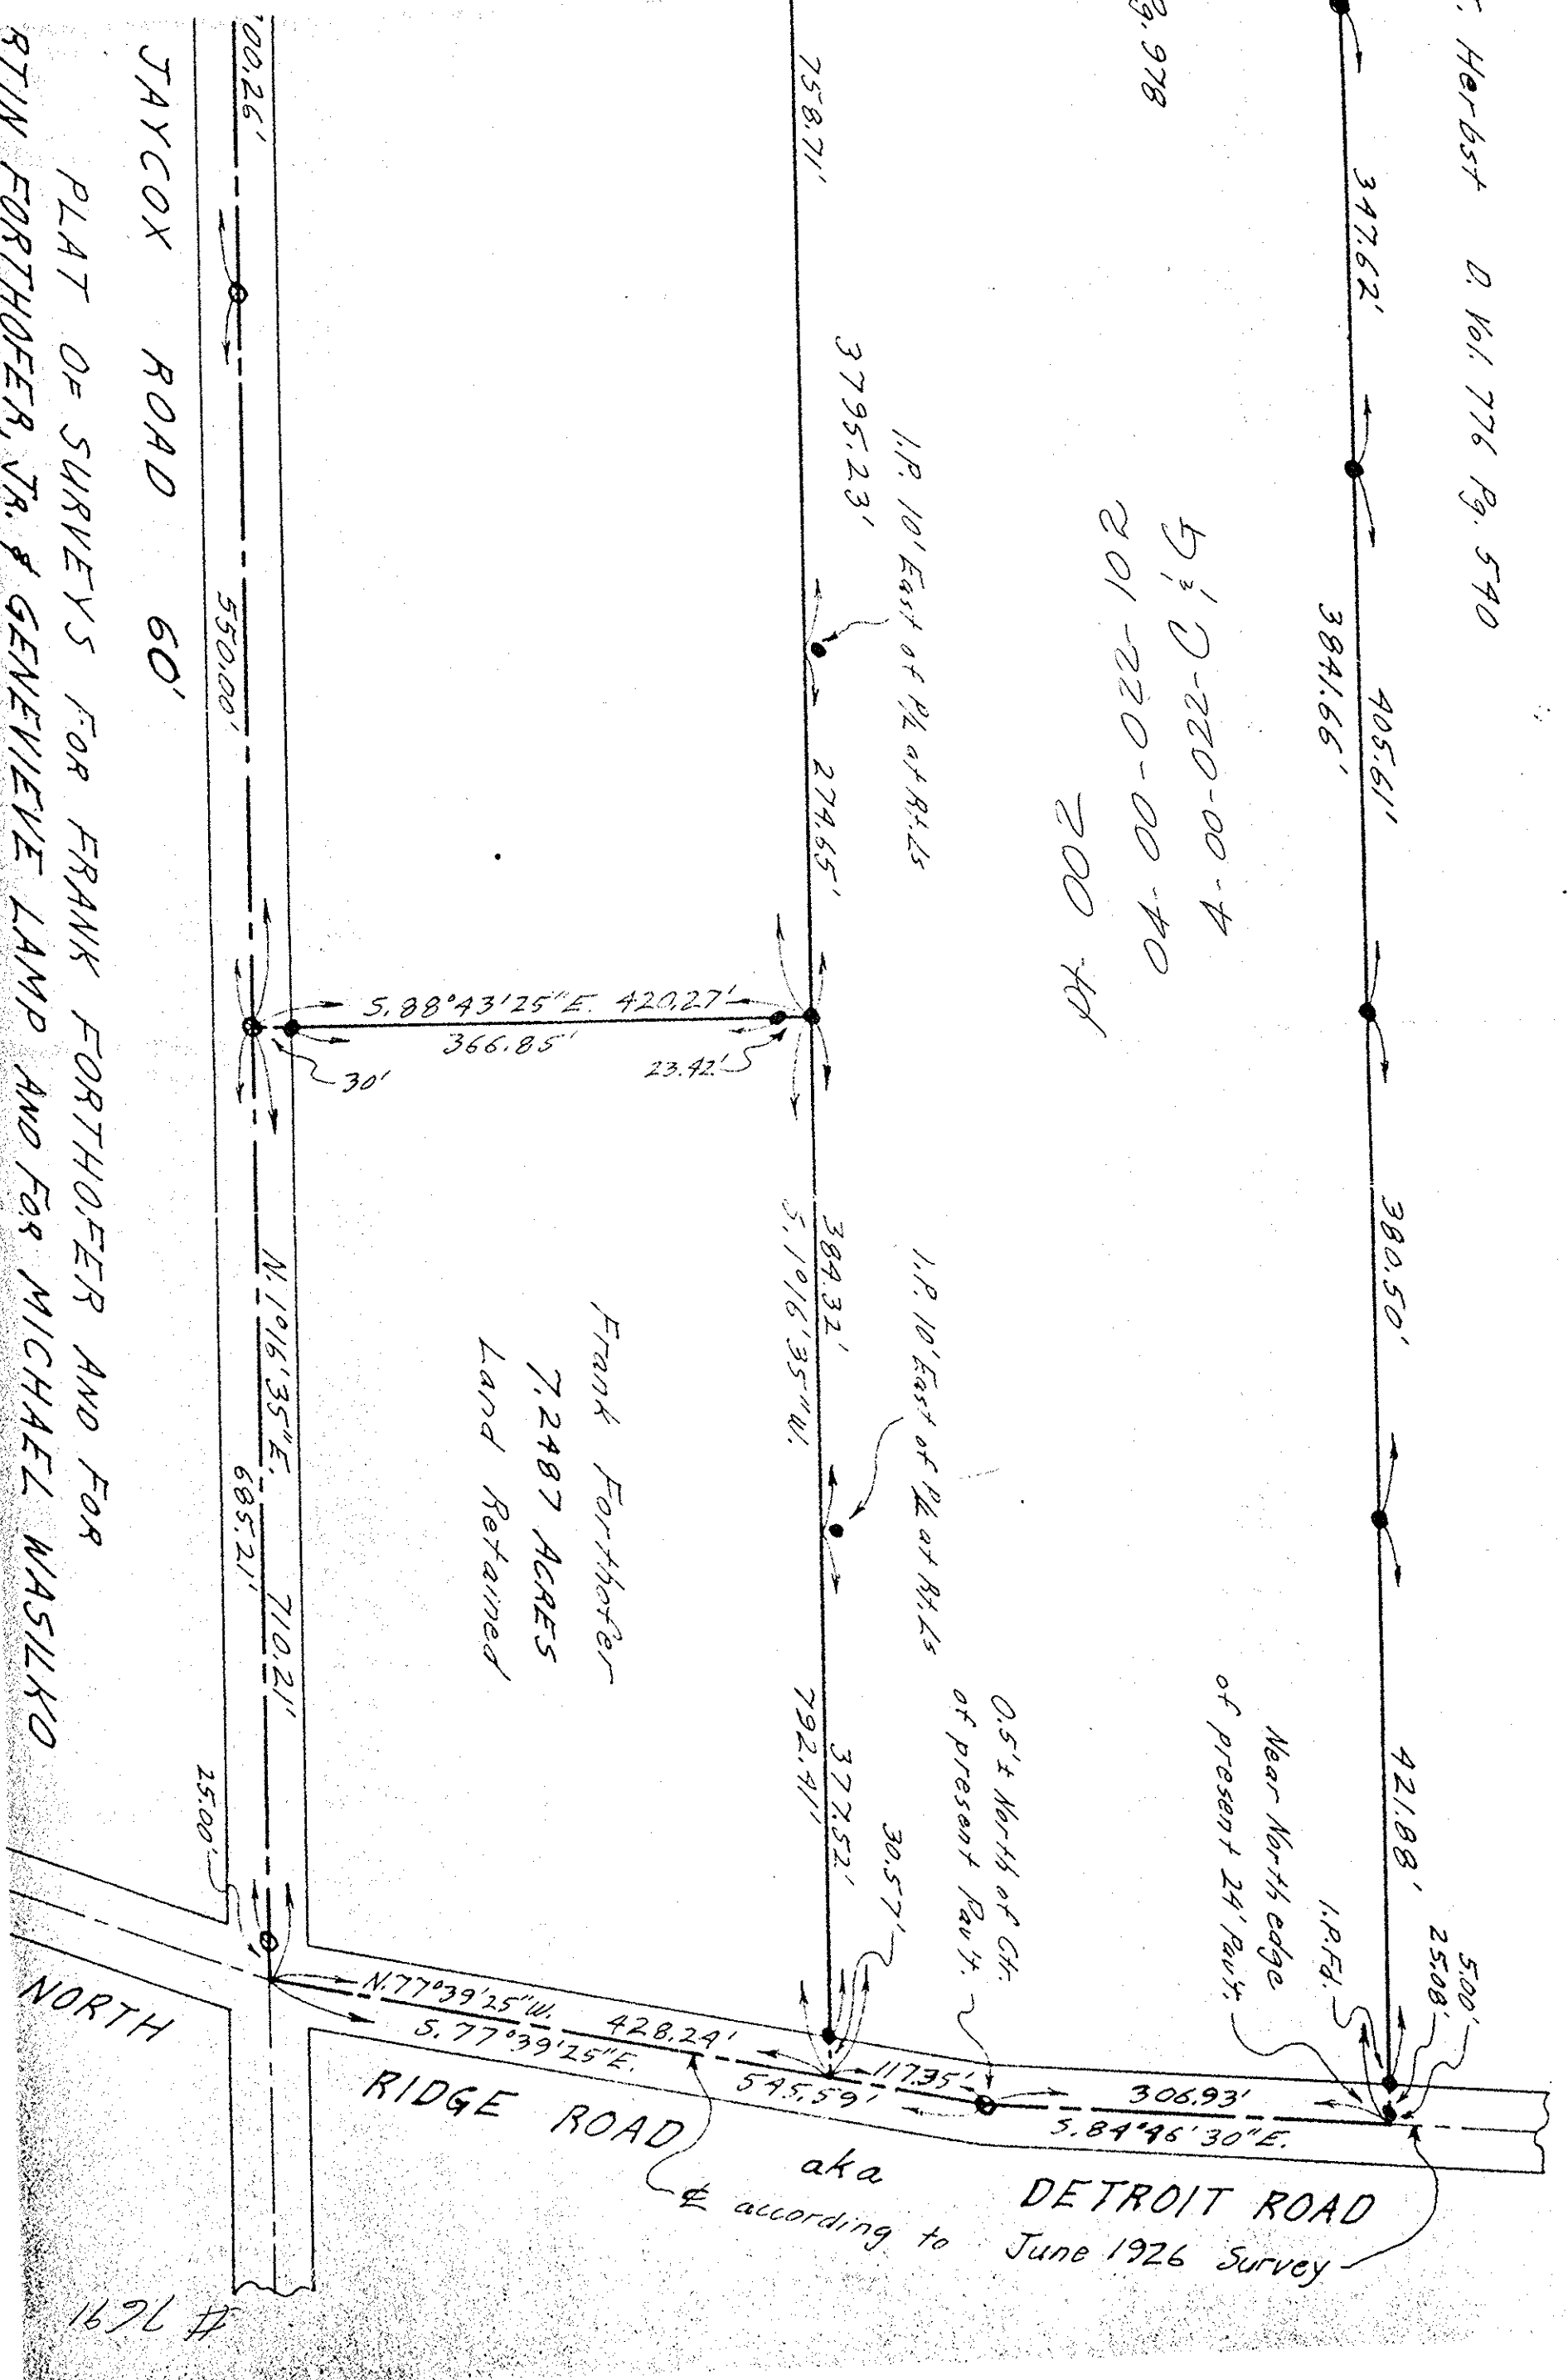 Herbst D. Vol. 776 Pg. 540
Pg. 978
347.62'
405.61'
3841.66'
380.50'
421.88'
5.00'
25.08'
I.P.Fd.
Near North edge
of present 24' Pav't.
5 & C
4-00-022-
04-00-022-102
pt 002
758.71'
3795.23'
I.P. 10' East of PL at Rt.∠s
274.65'
384.32'
S. 1°16'35"W.
I.P. 10' East of PL at Rt.∠s
377.52'
792.41'
30.57'
0.5'± North of Ctr.
of present Pav't.
S. 88°43'25"E. 420.27'
366.85'
23.42'
30'
Frank Forthofer
7.2487 ACRES
Land Retained
00.26'
550.00'
N. 1°16'35"E. 710.21'
685.21'
25.00'
JAYCOX ROAD 60'
PLAT OF SURVEYS FOR FRANK FORTHOFER AND FOR
RTIN FORTHOFER, JR. & GENEVIEVE LAMP AND FOR MICHAEL WASILKO
N. 77°39'25"W. 428.24'
S. 77°39'25"E. 545.59'
117.35'
306.93'
S. 84°46'30"E.
NORTH RIDGE ROAD
aka DETROIT ROAD
℄ according to June 1926 Survey
# 7691